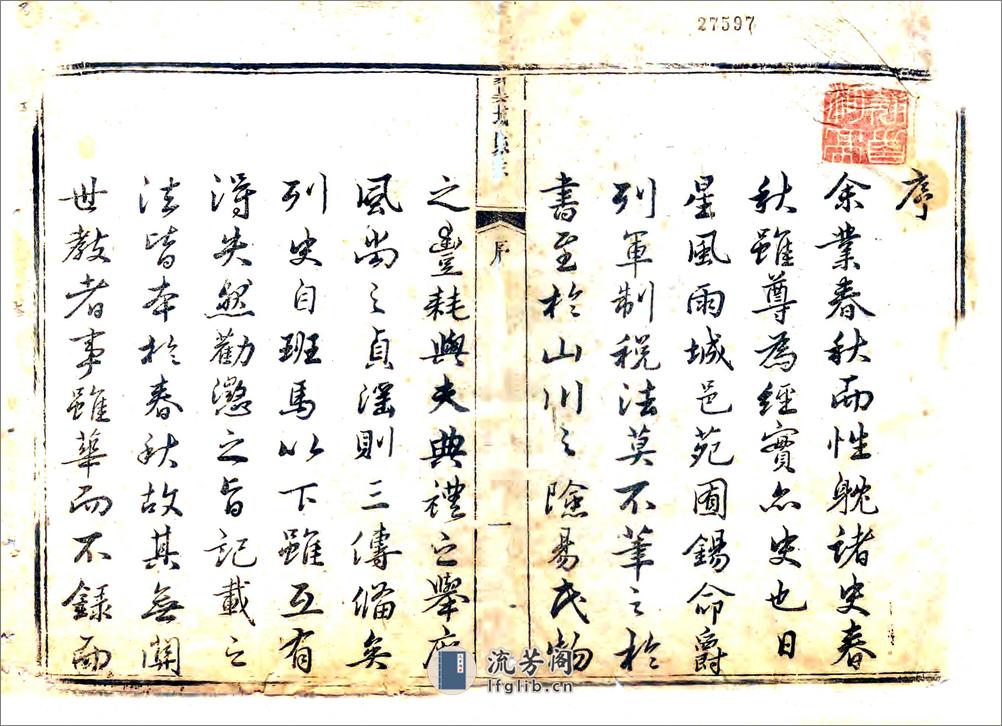 27597
序
余業春秋而性躭諸史春
秋雖尊為經實亦史也日
星風雨城邑苑囿錫命爵
列軍制税法莫不筆之於
書至於山川之險易民物
序
一
之豊耗與夫典禮之舉廢
風尚之貞淫則三傳備矣
列史自班馬以下雖互有
得失然勸懲之旨記載之
法皆本於春秋故其無關
世教者事雖華而不錄而
流芳阁
lfglib.cn